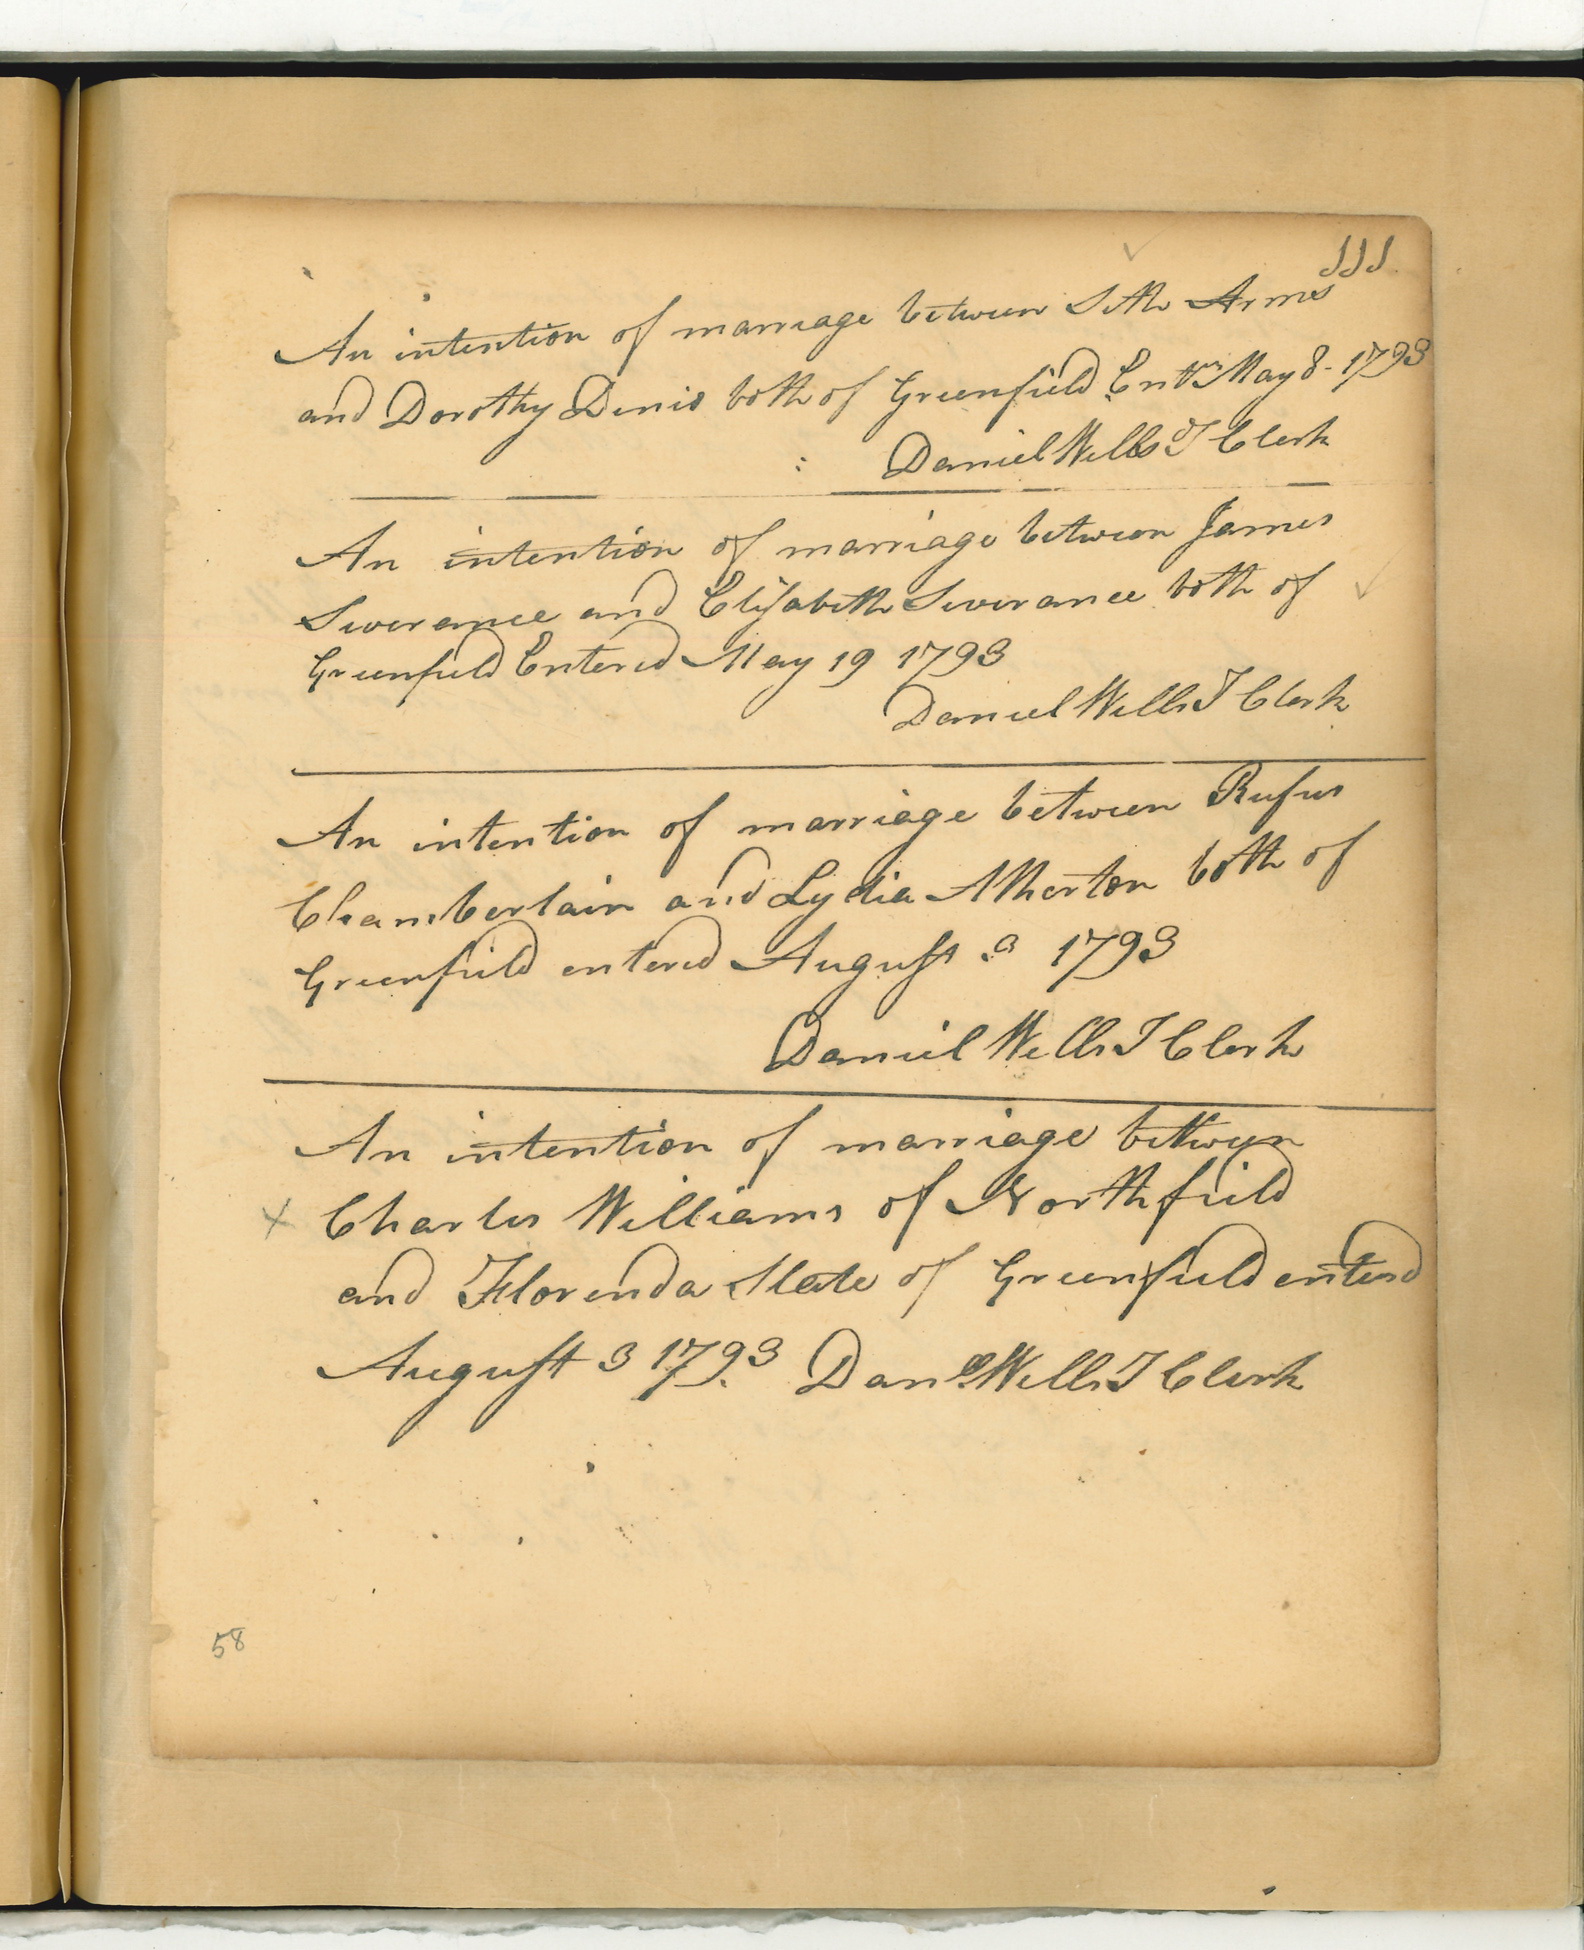 111
An intention of marriage between Seth Arms
and Dorothy Denio both of Greenfield Entrd May 8 - 1793
Daniel Wells T Clerk
An intention of marriage between James
Severance and Elisabeth Severance both of
Greenfield Entered May 19 1793
Daniel Wells T Clerk
An intention of marriage between Rufus
Chamberlain and Lydia Atherton both of
Greenfield entered August 3 1793
Daniel Wells T Clerk
An intention of marriage between
x Charles Williams of Northfield
and Florenda Slate of Greenfield enterd
August 3 1793 Danl Wells T Clerk
58